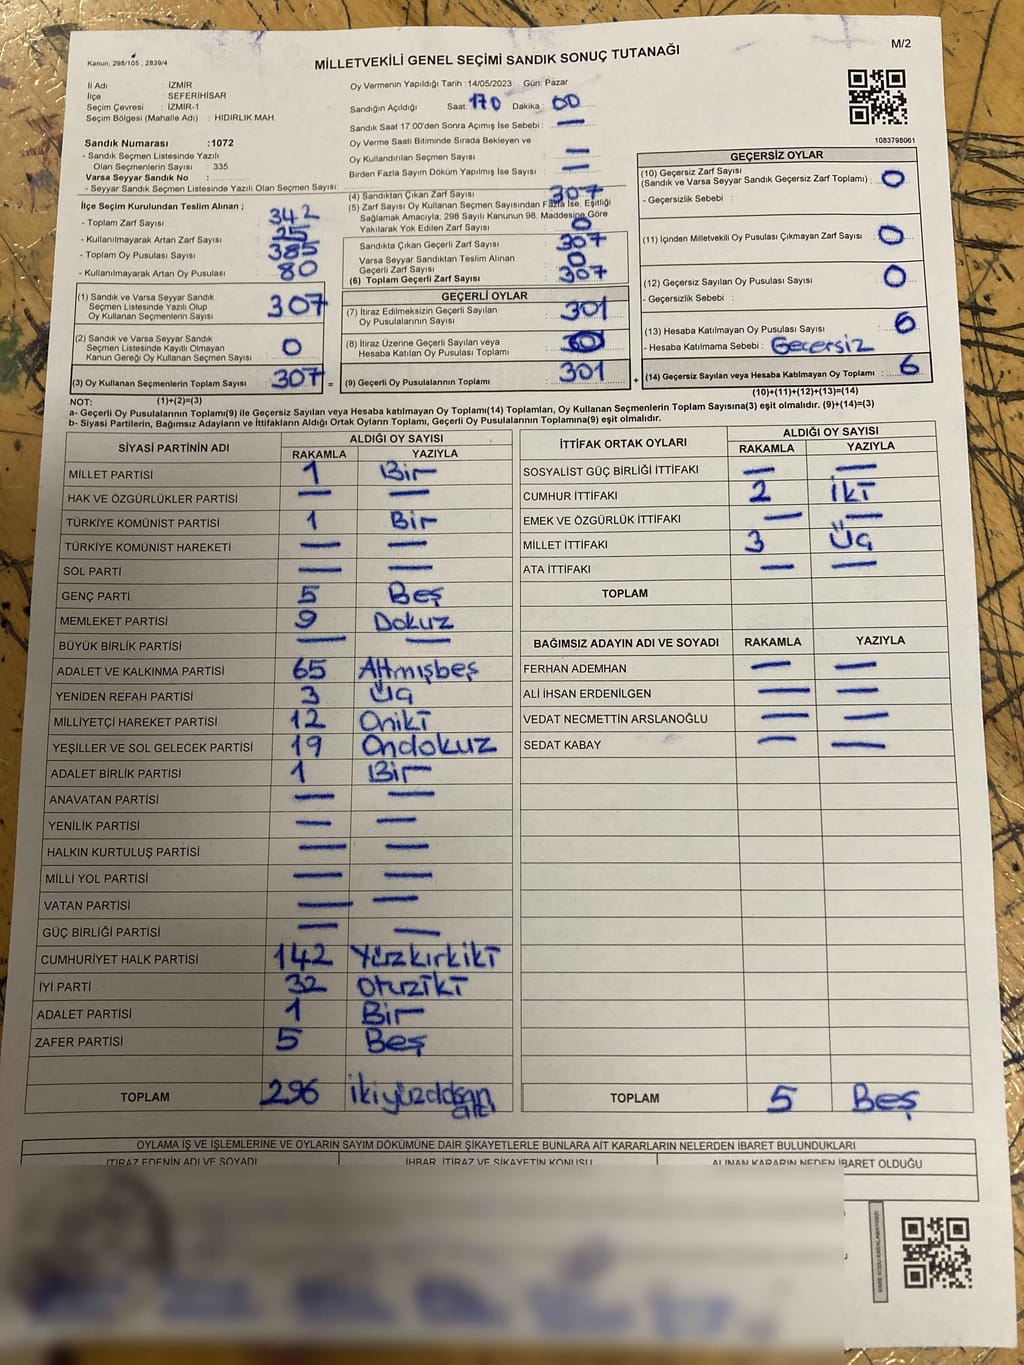 M/2
Kanun: 298/105 , 2839/4
MİLLETVEKİLİ GENEL SEÇİMİ SANDIK SONUÇ TUTANAĞI
İl Adı : İZMİR
İlçe : SEFERİHİSAR
Seçim Çevresi : İZMİR-1
Seçim Bölgesi (Mahalle Adı) : HIDIRLIK MAH.
Sandık Numarası :1072
- Sandık Seçmen Listesinde Yazılı
Olan Seçmenlerin Sayısı : 335
Varsa Seyyar Sandık No :
- Seyyar Sandık Seçmen Listesinde Yazılı Olan Seçmen Sayısı :
Oy Vermenin Yapıldığı Tarih :14/05/2023 Gün: Pazar
Sandığın Açıldığı Saat: 170 Dakika : 00
Sandık Saat 17:00'den Sonra Açmış İse Sebebi : —
Oy Verme Saati Bitiminde Sırada Bekleyen ve
Oy Kullandırılan Seçmen Sayısı : —
Birden Fazla Sayım Döküm Yapılmış İse Sayısı : —
1083798061
İlçe Seçim Kurulundan Teslim Alınan ;
- Toplam Zarf Sayısı : 342
- Kullanılmayarak Artan Zarf Sayısı : 25
- Toplam Oy Pusulası Sayısı : 385
- Kullanılmayarak Artan Oy Pusulası : 80
(1) Sandık ve Varsa Seyyar Sandık
Seçmen Listesinde Yazılı Olup
Oy Kullanan Seçmenlerin Sayısı : 307
(2) Sandık ve Varsa Seyyar Sandık
Seçmen Listesinde Kayıtlı Olmayan
Kanun Gereği Oy Kullanan Seçmen Sayısı : 0
(3) Oy Kullanan Seçmenlerin Toplam Sayısı : 307 =
(4) Sandıktan Çıkan Zarf Sayısı : 307
(5) Zarf Sayısı Oy Kullanan Seçmen Sayısından Fazla İse, Eşitliği
Sağlamak Amacıyla, 298 Sayılı Kanunun 98. Maddesine Göre
Yakılarak Yok Edilen Zarf Sayısı : 0
Sandıkta Çıkan Geçerli Zarf Sayısı : 307
Varsa Seyyar Sandıktan Teslim Alınan
Geçerli Zarf Sayısı : 0
(6) Toplam Geçerli Zarf Sayısı : 307
GEÇERLİ OYLAR
(7) İtiraz Edilmeksizin Geçerli Sayılan
Oy Pusulalarının Sayısı : 301
(8) İtiraz Üzerine Geçerli Sayılan veya
Hesaba Katılan Oy Pusulası Toplamı :
(9) Geçerli Oy Pusulalarının Toplamı : 301 +
GEÇERSİZ OYLAR
(10) Geçersiz Zarf Sayısı
(Sandık ve Varsa Seyyar Sandık Geçersiz Zarf Toplamı) : 0
- Geçersizlik Sebebi :
(11) İçinden Milletvekili Oy Pusulası Çıkmayan Zarf Sayısı : 0
(12) Geçersiz Sayılan Oy Pusulası Sayısı : 0
- Geçersizlik Sebebi :
(13) Hesaba Katılmayan Oy Pusulası Sayısı : 6
- Hesaba Katılmama Sebebi : Geçersiz
(14) Geçersiz Sayılan veya Hesaba Katılmayan Oy Toplamı : 6
NOT: (1)+(2)=(3)
(10)+(11)+(12)+(13)=(14)
a- Geçerli Oy Pusulalarının Toplamı(9) ile Geçersiz Sayılan veya Hesaba katılmayan Oy Toplamı(14) Toplamları, Oy Kullanan Seçmenlerin Toplam Sayısına(3) eşit olmalıdır. (9)+(14)=(3)
b- Siyasi Partilerin, Bağımsız Adayların ve İttifakların Aldığı Ortak Oyların Toplamı, Geçerli Oy Pusulalarının Toplamına(9) eşit olmalıdır.
SİYASİ PARTİNİN ADI ALDIĞI OY SAYISI
RAKAMLA YAZIYLA
MİLLET PARTİSİ 1 Bir
HAK VE ÖZGÜRLÜKLER PARTİSİ — —
TÜRKİYE KOMÜNİST PARTİSİ 1 Bir
TÜRKİYE KOMÜNİST HAREKETİ — —
SOL PARTİ — —
GENÇ PARTİ 5 Beş
MEMLEKET PARTİSİ 9 Dokuz
BÜYÜK BİRLİK PARTİSİ — —
ADALET VE KALKINMA PARTİSİ 65 Altmışbeş
YENİDEN REFAH PARTİSİ 3 Üç
MİLLİYETÇİ HAREKET PARTİSİ 12 Oniki
YEŞİLLER VE SOL GELECEK PARTİSİ 19 Ondokuz
ADALET BİRLİK PARTİSİ 1 Bir
ANAVATAN PARTİSİ — —
YENİLİK PARTİSİ — —
HALKIN KURTULUŞ PARTİSİ — —
MİLLİ YOL PARTİSİ — —
VATAN PARTİSİ — —
GÜÇ BİRLİĞİ PARTİSİ — —
CUMHURİYET HALK PARTİSİ 142 Yüzkırkiki
İYİ PARTİ 32 Otuziki
ADALET PARTİSİ 1 Bir
ZAFER PARTİSİ 5 Beş
TOPLAM 296
İTTİFAK ORTAK OYLARI ALDIĞI OY SAYISI
RAKAMLA YAZIYLA
SOSYALİST GÜÇ BİRLİĞİ İTTİFAKI — —
CUMHUR İTTİFAKI 2 İki
EMEK VE ÖZGÜRLÜK İTTİFAKI — —
MİLLET İTTİFAKI 3 Üç
ATA İTTİFAKI — —
TOPLAM
BAĞIMSIZ ADAYIN ADI VE SOYADI RAKAMLA YAZIYLA
FERHAN ADEMHAN — —
ALİ İHSAN ERDENİLGEN — —
VEDAT NECMETTİN ARSLANOĞLU — —
SEDAT KABAY — —
TOPLAM 5 Beş
OYLAMA İŞ VE İŞLEMLERİNE VE OYLARIN SAYIM DÖKÜMÜNE DAİR ŞİKAYETLERLE BUNLARA AİT KARARLARIN NELERDEN İBARET BULUNDUKLARI
İTİRAZ EDENİN ADI VE SOYADI İHBAR, İTİRAZ VE ŞİKAYETİN KONUSU ALINAN KARARIN NEDEN İBARET OLDUĞU
KARE KODU KARALAMAYINIZ!